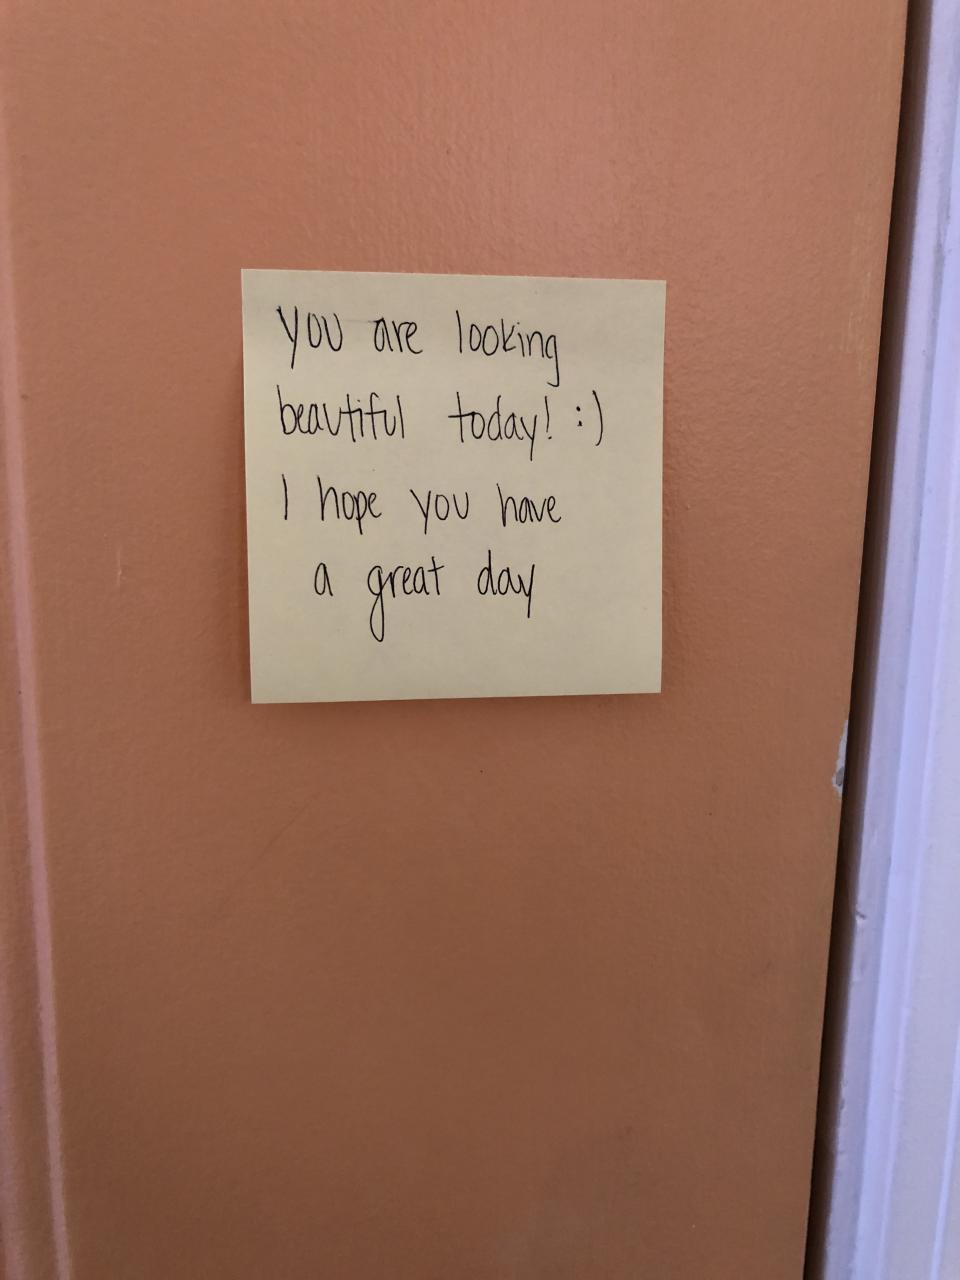 you are looking
beautiful today! :)
I hope you have
a great day